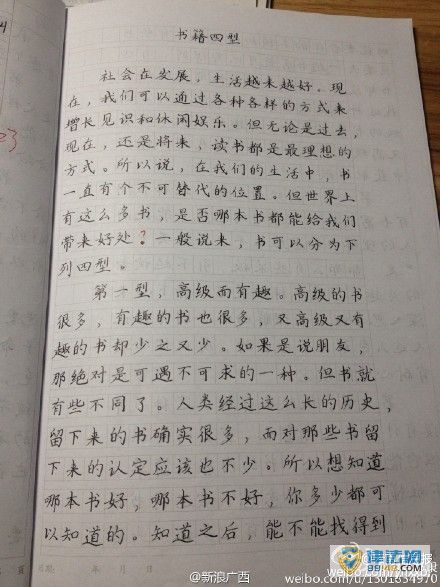 书籍四型
社会在发展，生活越来越好。现
在，我们可以通过各种各样的方式来
增长见识和休闲娱乐。但无论是过去，
现在，还是将来，读书都是最理想的
方式。所以说，在我们的生活中，书
一直有个不可替代的位置。但世界上
有这么多书，是否哪本书都能给我们
带来好处？一般说来，书可以分为下
列四型。
第一型，高级而有趣。高级的书
很多，有趣的书也很多，又高级又有
趣的书却少之又少。如果是说朋友，
那绝对是可遇不可求的一种。但书就
有些不同了。人类经过这么长的历史，
留下来的书确实很多，而对那些书留
下来的认定应该也不少。所以想知道
哪本书好，哪本书不好，你多少都可
以知道的。知道之后，能不能找得到
页
年 月 日
@新浪广西
律法网